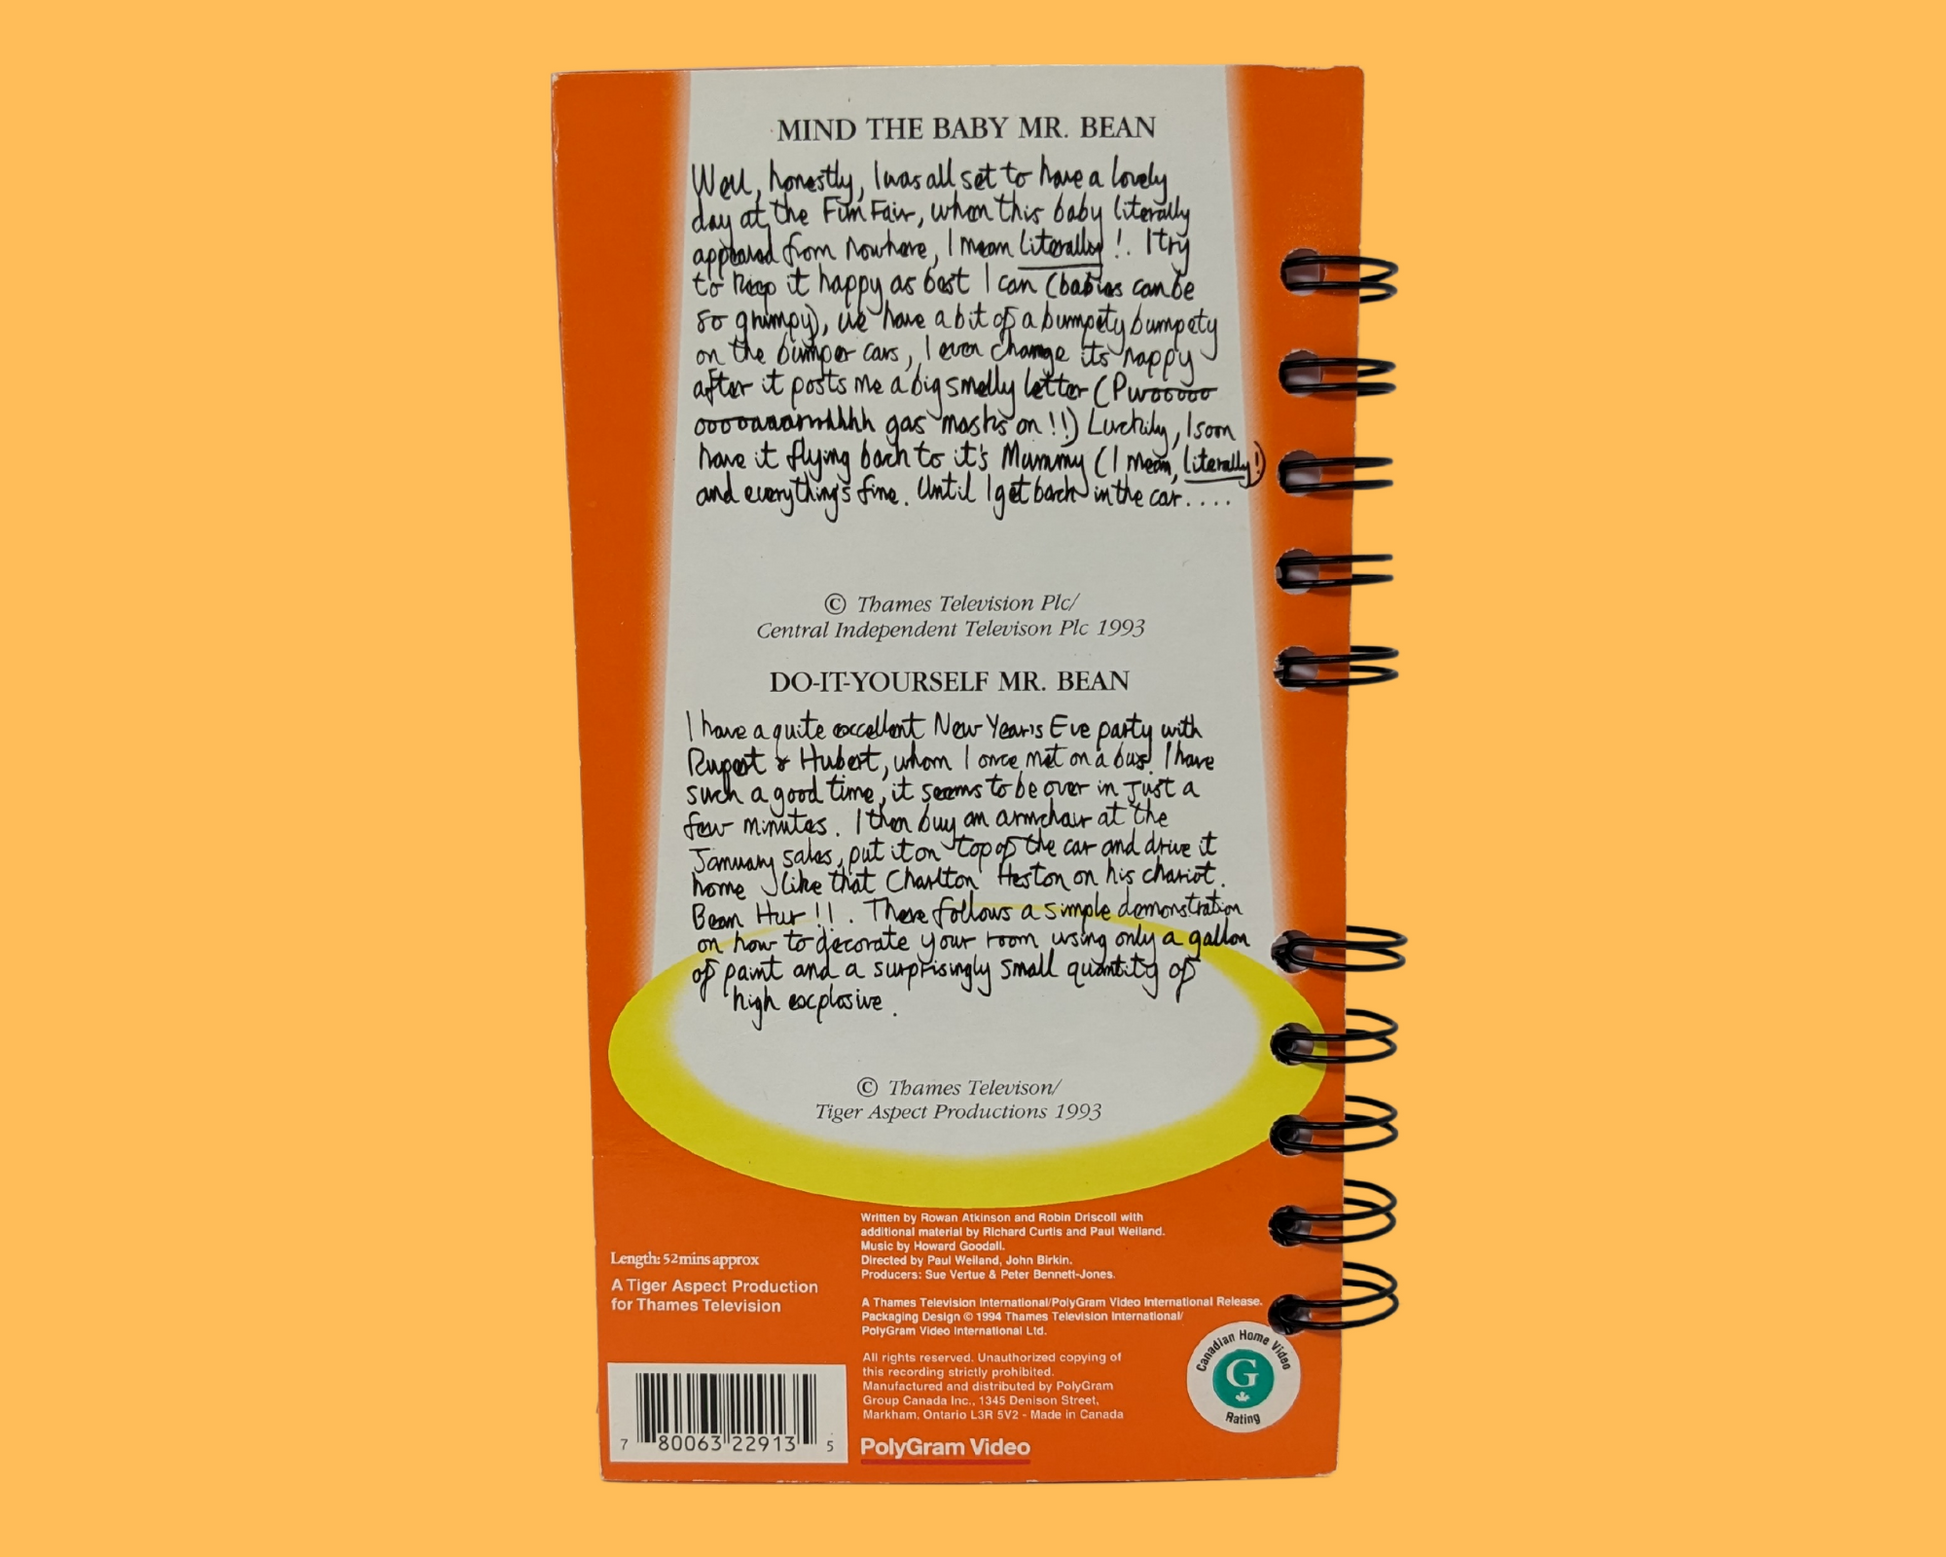 MIND THE BABY MR. BEAN
Well, honestly, I was all set to have a lovely
day at the Fun Fair, when this baby literally
appeared from nowhere, I mean literally!. I try
to keep it happy as best I can (babies can be
so grumpy), we have a bit of a bumpety bumpety
on the bumper cars, I even change its nappy
after it posts me a big smelly letter (Pwooooo
ooooaaarrhhhh gas masks on!!) Luckily, I soon
have it flying back to it's Mummy (I mean, literally!)
and everything's fine. Until I get back in the car....
© Thames Television Plc/
Central Independent Televison Plc 1993
DO-IT-YOURSELF MR. BEAN
I have a quite excellent New Year's Eve party with
Rupert & Hubert, whom I once met on a bus. I have
such a good time, it seems to be over in just a
few minutes. I then buy an armchair at the
January sales, put it on top of the car and drive it
home like that Charlton Heston on his chariot.
Bean Hur!!. There follows a simple demonstration
on how to decorate your room using only a gallon
of paint and a surprisingly small quantity of
high explosive.
© Thames Televison/
Tiger Aspect Productions 1993
Length: 52mins approx
A Tiger Aspect Production
for Thames Television
Written by Rowan Atkinson and Robin Driscoll with
additional material by Richard Curtis and Paul Weiland.
Music by Howard Goodall.
Directed by Paul Weiland, John Birkin.
Producers: Sue Vertue & Peter Bennett-Jones.
A Thames Television International/PolyGram Video International Release.
Packaging Design © 1994 Thames Television International/
PolyGram Video International Ltd.
All rights reserved. Unauthorized copying of
this recording strictly prohibited.
Manufactured and distributed by PolyGram
Group Canada Inc., 1345 Denison Street,
Markham, Ontario L3R 5V2 - Made in Canada
PolyGram Video
Canadian Home Video
G
Rating
7 80063 22913 5